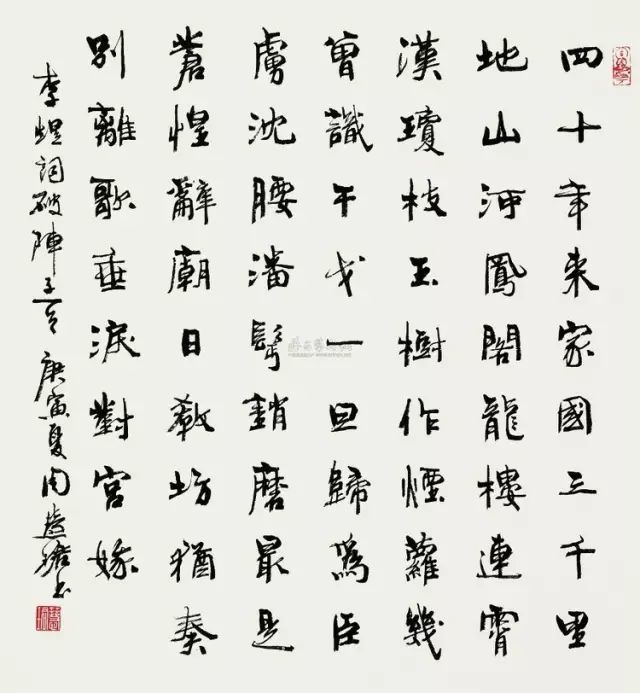 四十年來家國三千里
地山河鳳閣龍樓連霄
漢瓊枝玉樹作煙蘿幾
曾識干戈一旦歸爲臣
虜沈腰潘鬢銷磨最是
蒼惶辭廟日教坊猶奏
別離歌垂淚對宮娥
李煜詞破陣子一首 庚寅夏周慧珺书